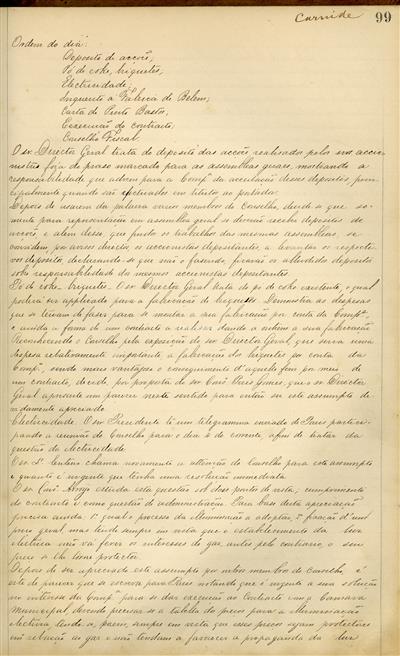 Carnide 99
Ordem do dia:
Deposito de acções,
Pó de coke, briquetes,
Electricidade,
Inquerito a Fabrica de Belem,
Carta de Pinto Bastos,
Execução do contracto,
Conselho Fiscal.
O snr Director Geral trata do deposito das acções realisado pelos snrs accio-
nistas fóra do praso marcado para as assembleas geraes, mostrando a
responsabilidade que advem para a Compª da acceitação desses depositos, prin-
cipalmente quando são effectuados em titulos ao portador.
Depois de usarem da palavra varios membros do Conselho, decide-se que so-
mente para representação em assemblea geral se devem receber depositos de
acções, e alem disso que findos os trabalhos das mesmas assembleas, se
convidem, por avisos directos, os accionistas depositantes, a levantar os respecti-
vos depositos, declarando-se que não o fazendo, ficarão os alludidos depositos
sob responsabilidade dos mesmos accionistas depositantes.
Pó de coke - briquetes. O snr Director Geral trata do pó de coke existente, o qual
poderá ser applicado para a fabricação de briquetes. Demonstra as despesas
que se teriam de fazer para se montar a sua fabricação por conta da Compª
e ainda a forma de um contracto a realisar dando a outrem a sua fabricação.
Reconhecendo o Conselho pela exposição do snr Director Geral, que seria uma
despesa relativamente importante a fabricação dos briquetes por conta da
Compª, sendo mais vantajoso o conseguimento d'aquelle fim por meio de
um contracto, decide, por proposta do snr Caio Pires Gomes, que o snr Director
Geral apresente um parecer neste sentido para então ser este assumpto de-
vidamente apreciado.
Electricidade. O snr Presidente lê um telegramma enviado de Paris partici-
pando a reunião do Conselho para o dia 6 do corrente, afim de tratar da
questão da electricidade.
O snr chama novamente a attenção do Conselho para este assumpto
e quanto é urgente que tenha uma resolução immediata.
O snr estuda esta questão sob dois pontos de vista, cumprimento
do contracto e como questão de administração. Para basear esta apreciação
precisa saber 1º qual o processo de illuminação a adoptar, 2º fixação d'um
preço geral, mas tendo sempre em vista que o estabelecimento da luz
electrica não vá ferir os interesses do gaz, antes pelo contrario, o seu
preço o lhe seja protector.
Depois de ser apreciado este assumpto por outros membros do Conselho, é
este de parecer que se escreva para Paris notando que é urgente a sua solução
no interesse da Compª para se dar execução ao Contracto com a Camara
Municipal, devendo precisar-se a tabella de preços para a illuminação
electrica tendo-se, porem, sempre em vista que esses preços sejam protectores
em relação ao gaz e não tendam a favorecer a propaganda da luz